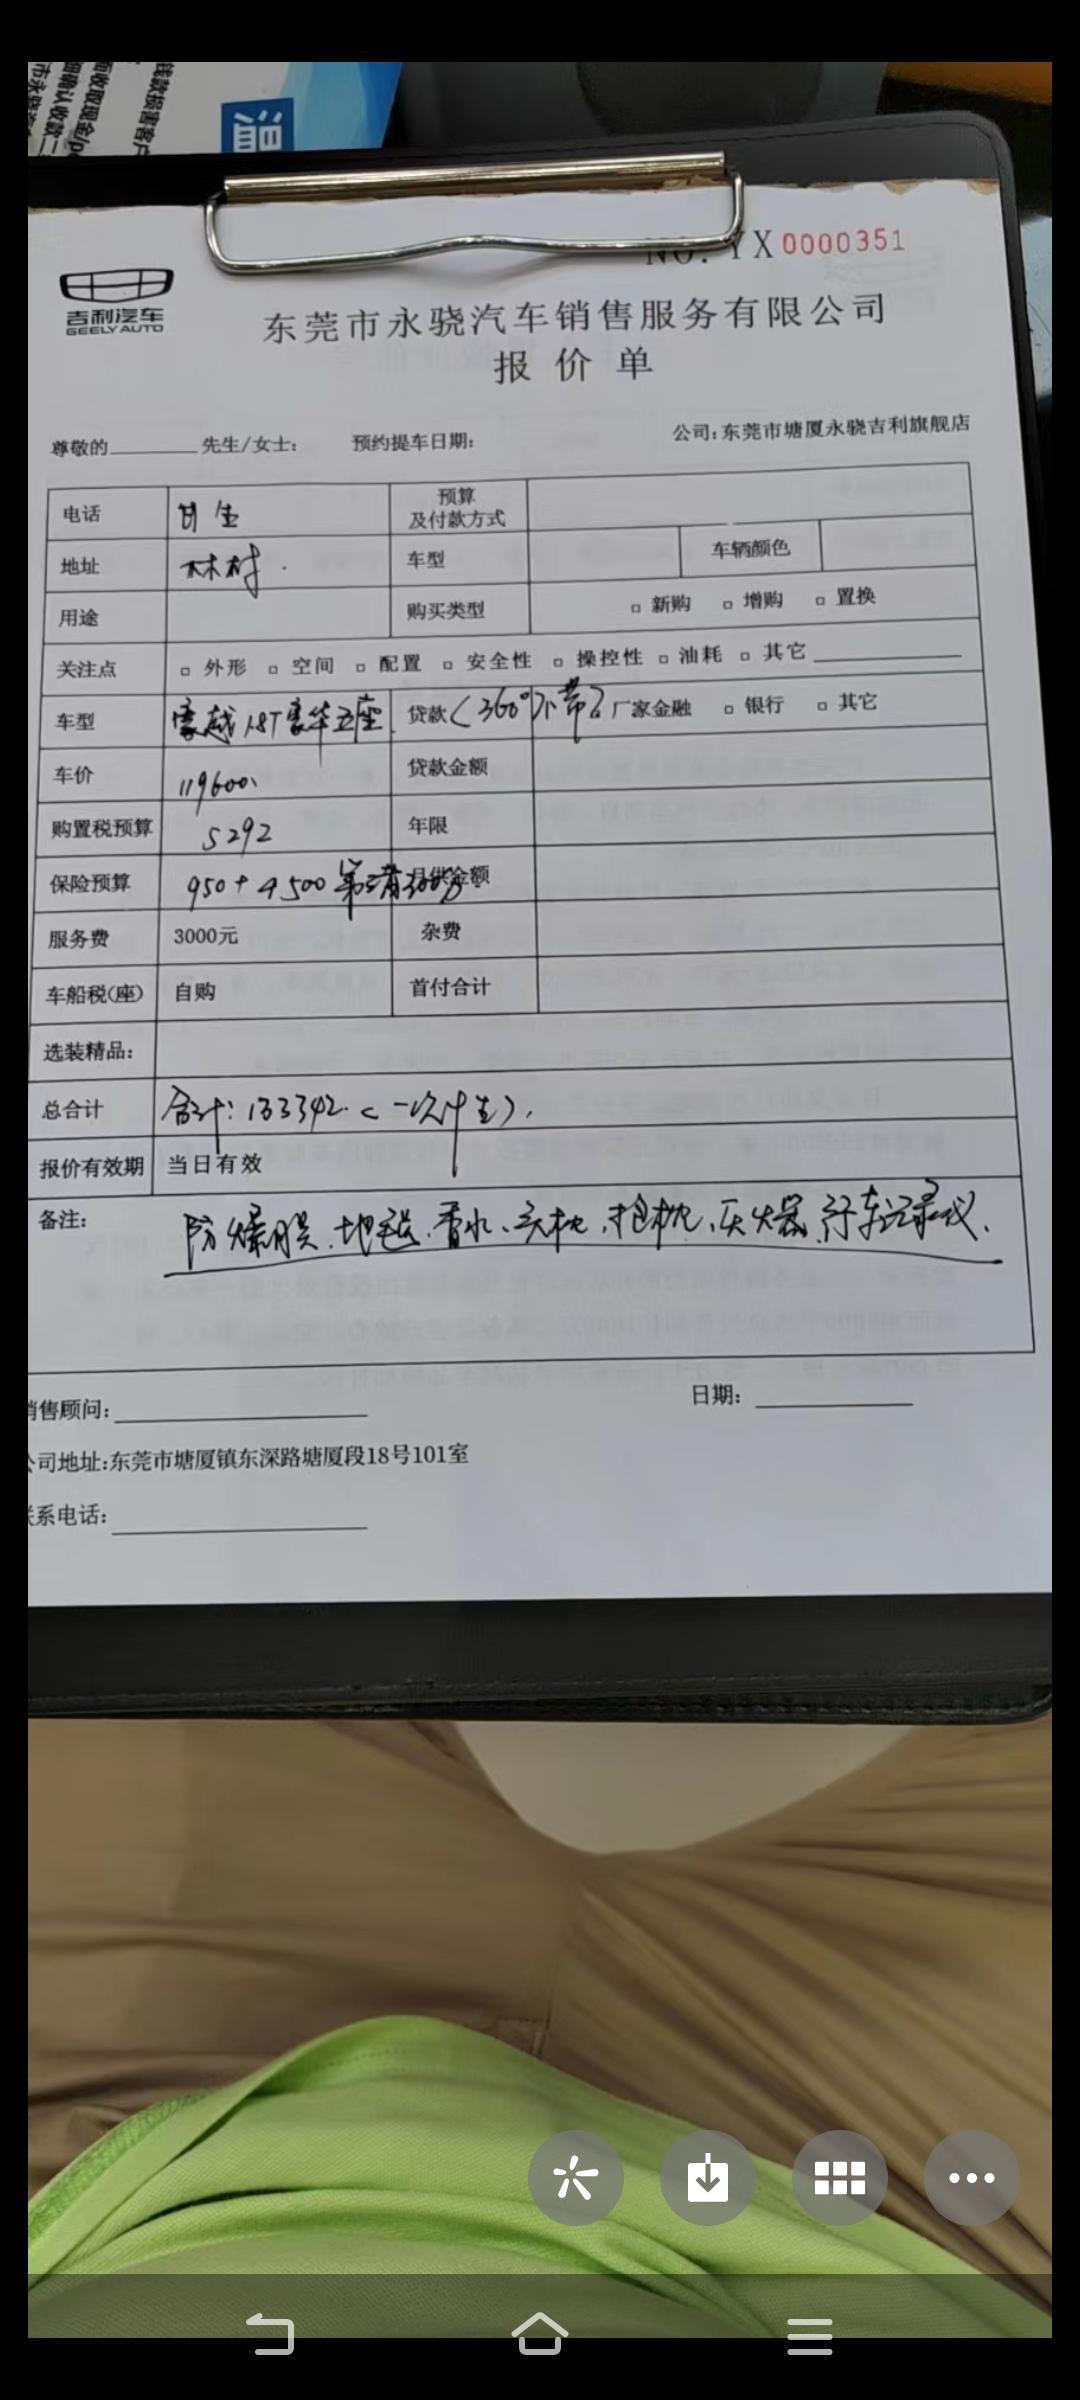 线数损害客户
面收取现金/p
细确认收款二
市永骁汽
温
NO. YX0000351
吉利汽车
GEELY AUTO
东莞市永骁汽车销售服务有限公司
报价单
尊敬的________先生/女士: 预约提车日期: 公司:东莞市塘厦永骁吉利旗舰店
电话 甘生 预算及付款方式
地址 林村. 车型 车辆颜色
用途 购买类型 □ 新购 □ 增购 □ 置换
关注点 □ 外形 □ 空间 □ 配置 □ 安全性 □ 操控性 □ 油耗 □ 其它________
车型 豪越1.8T豪华五座 贷款 (360°不带) 厂家金融 □ 银行 □ 其它
车价 119600 贷款金额
购置税预算 5292 年限
保险预算 950+4500 第三者300万 月供金额
服务费 3000元 杂费
车船税(座) 自购 首付合计
选装精品:
总合计 合计:133342.(一次付生).
报价有效期 当日有效
备注: 防爆膜、地毯、香水、头枕、抱枕、灭火器、行车记录仪、
销售顾问:________ 日期:________
公司地址:东莞市塘厦镇东深路塘厦段18号101室
联系电话:________